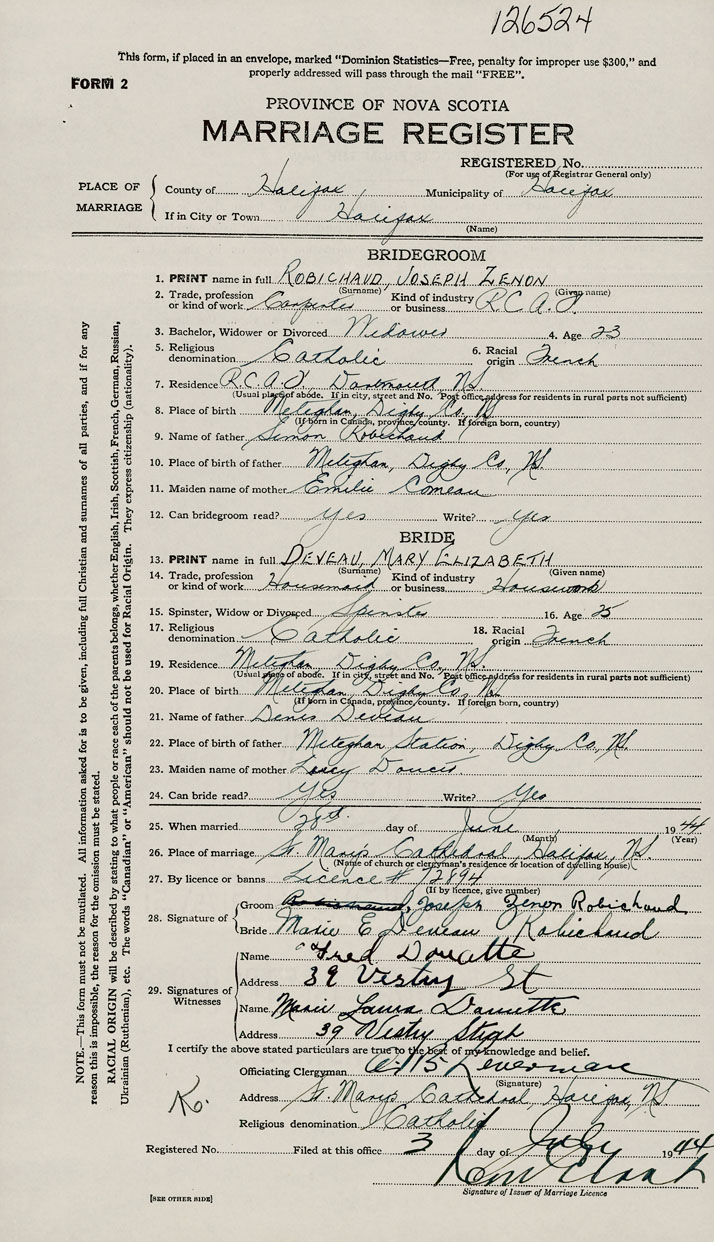 126524
This form, if placed in an envelope, marked "Dominion Statistics—Free, penalty for improper use $300," and
properly addressed will pass through the mail "FREE".
FORM 2
PROVINCE OF NOVA SCOTIA
MARRIAGE REGISTER
REGISTERED No.
(For use of Registrar General only)
PLACE OF MARRIAGE
County of Halifax Municipality of Halifax
If in City or Town Halifax
(Name)
BRIDEGROOM
1. PRINT name in full ROBICHAUD, JOSEPH ZENON
(Surname) (Given name)
2. Trade, profession or kind of work Carpenter Kind of industry or business R.C.A.F.
3. Bachelor, Widower or Divorced Widower 4. Age 23
5. Religious denomination Catholic 6. Racial origin French
7. Residence R.C.A.F. Dartmouth, NS.
(Usual place of abode. If in city, street and No. Post office address for residents in rural parts not sufficient)
8. Place of birth Meteghan, Digby Co, NS
(If born in Canada, province/county. If foreign born, country)
9. Name of father Simon Robichaud
10. Place of birth of father Meteghan, Digby Co, NS.
11. Maiden name of mother Emilie Comeau
12. Can bridegroom read? yes Write? yes
BRIDE
13. PRINT name in full DEVEAU, MARY ELIZABETH
(Surname) (Given name)
14. Trade, profession or kind of work Housemaid Kind of industry or business Housework
15. Spinster, Widow or Divorced Spinster 16. Age 25
17. Religious denomination Catholic 18. Racial origin French
19. Residence Meteghan Digby Co, NS.
(Usual place of abode. If in city, street and No. Post office address for residents in rural parts not sufficient)
20. Place of birth Meteghan, Digby Co, NS.
(If born in Canada, province/county. If foreign born, country)
21. Name of father Denis Deveau
22. Place of birth of father Meteghan Station, Digby Co, NS.
23. Maiden name of mother Doucet
24. Can bride read? Yes Write? Yes
25. When married 28th day of June 1944
(Month) (Year)
26. Place of marriage St. Mary's Cathedral, Halifax, NS.
(Name of church or clergyman's residence or location of dwelling house)
27. By licence or banns Licence # 72894
(If by licence, give number)
28. Signature of
Groom Joseph Zenon Robichaud
Bride Marie E Deveau Robichaud
29. Signatures of Witnesses
Name Fred Doucette
Address 39 Vestry St
Name Marie Laura Doucette
Address 39 Vestry Street
I certify the above stated particulars are true to the best of my knowledge and belief.
Officiating Clergyman
(Signature)
Address St. Mary's Cathedral, Halifax, NS
Religious denomination Catholic
Registered No. Filed at this office 3 day of July 1944
Signature of Issuer of Marriage Licence
[SEE OTHER SIDE]
NOTE.—This form must not be mutilated. All information asked for is to be given, including full Christian and surnames of all parties, and if for any
reason this is impossible, the reason for the omission must be stated.
RACIAL ORIGIN will be described by stating to what people or race each of the parents belongs, whether English, Irish, Scottish, French, German, Russian,
Ukrainian (Ruthenian), etc. The words "Canadian" or "American" should not be used for Racial Origin. They express citizenship (nationality).